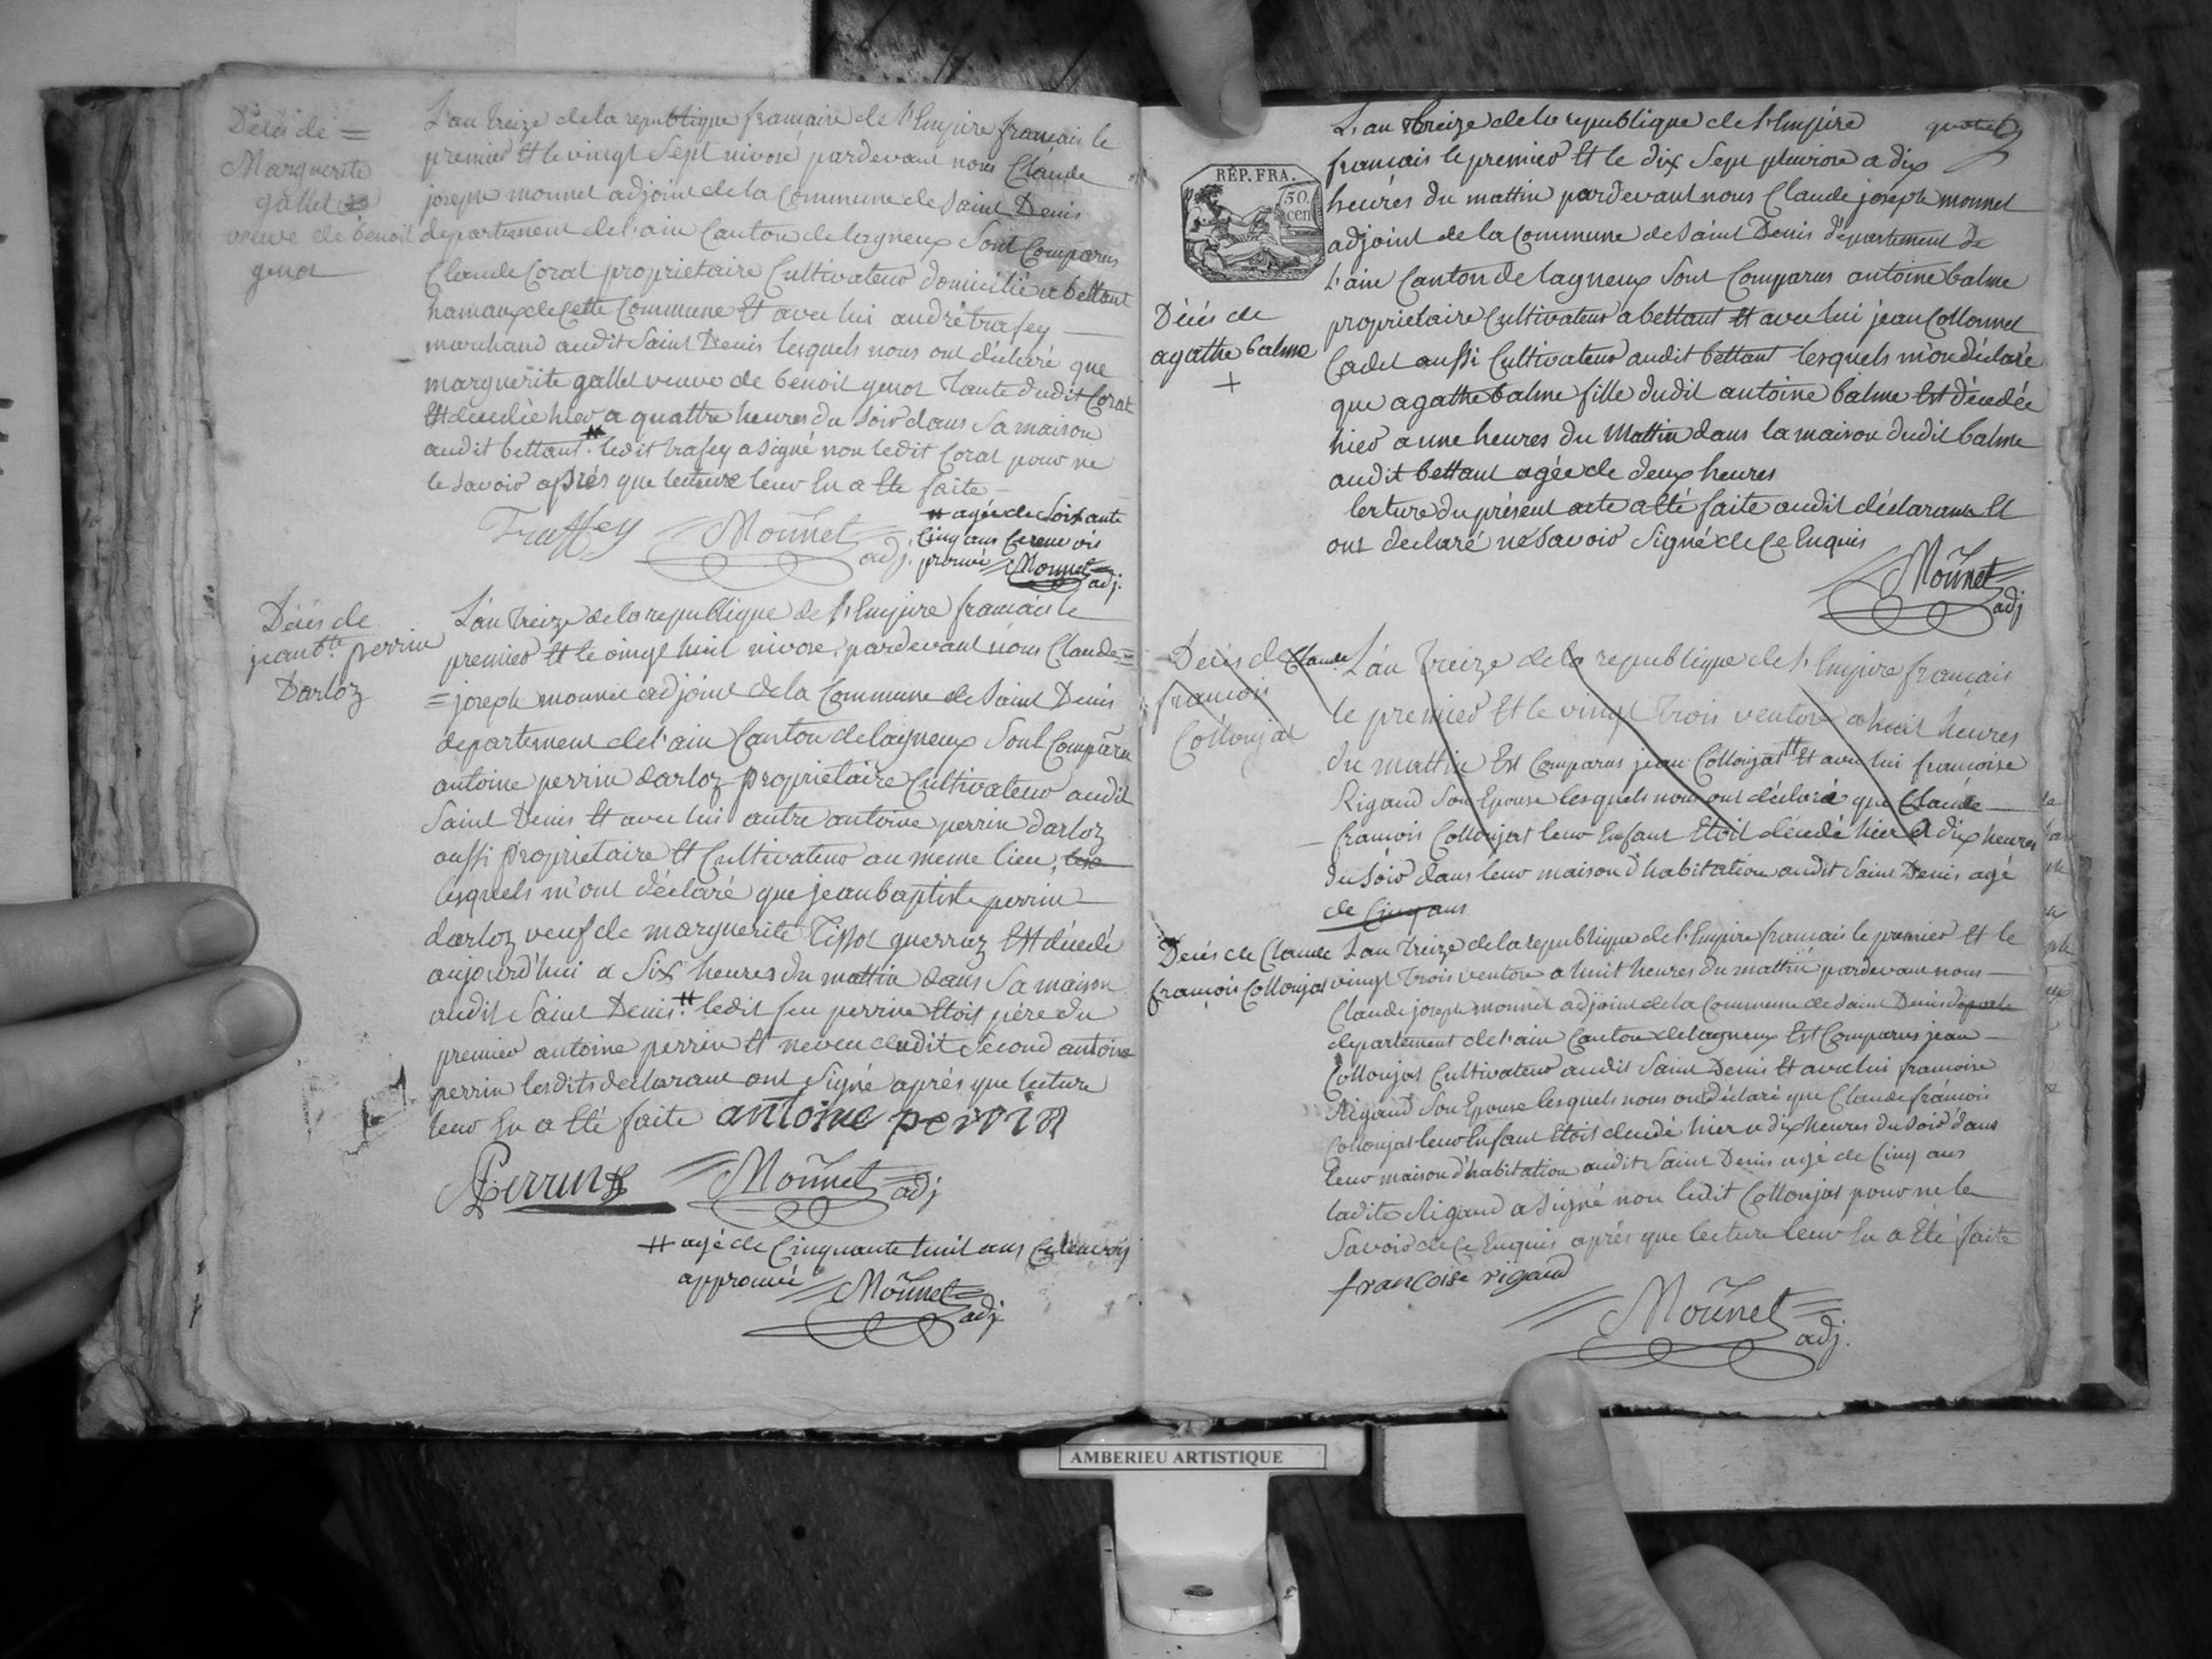 Décés de =
Marguerite
gallet
veuve de benoit
genot
L'an treize de la republique francaise de l'Empire francais le
premier Et le vingt Sept nivose pardevant nous Claude
joseph monnet adjoint de la Commune de Saint Denis
departement de l'ain Canton de lagneux Sont Comparus
Claude Corat proprietaire Cultivateur domicilié a bettant
hamaux de Cette Commune Et avec lui andré trafey
marchand audit Saint Denis lesquels nous ont déclaré que
marguerite gallet veuve de benoit genot Tante dudit Corat
Est décedée hier a quattre heures du Soir dans Sa maison
audit bettant # ledit trafey a Signé non ledit Corat pour ne
le Savoir aprés que lecture leur En a Eté faite
Traffey Monnet adj.
# agée de Soixante
Cinq ans Ce renvois
prouvé Monnet adj.
Décés de
jean bte perrin
Darloz
L'an treize de la republique de l'Empire francais le
premier Et le vingt huit nivose, pardevant nous Claude =
= joseph monnet adjoint de la Commune de Saint Denis
departement de l'ain Canton de lagneux Sont Comparu
antoine perrin darloz proprietaire Cultivateur audit
Saint Denis Et avec lui autre antoine perrin darloz
aussi proprietaire Et Cultivateur au meme lieu,
lesquels m'ont déclaré que jean baptiste perrin
darloz veuf de marguerite Tissot querruz Est décedé
aujourd'hui a Six heures du mattin dans Sa maison
audit Saint Denis # ledit feu perrin Etois pére du
premier antoine perrin Et neveu dudit Second antoine
perrin lesdits declarant ont Signé aprés que lecture
leur En a Eté faite antoine perrin
Perrin Monnet adj
# agé de Cinquante huit ans Ce renvois
approuvé Monnet adj.
L'an treize de la republique de l'Empire
francais le premier Et le dix Sept pluviose a dix
heures du mattin pardevant nous Claude joseph monnet
adjoint de la Commune de Saint Denis département de
l'ain Canton de lagneux Sont Comparus antoine balme
proprietaire Cultivateur a bettant Et avec lui jean Collonnet
Cadet aussi Cultivateur audit bettant lesquels m'on déclaré
que agathe balme fille dudit antoine balme Est décedée
hier a une heures du Mattin dans la maison dudit balme
audit bettant agée de deux heures
lecture du présent acte a Eté faite audit déclarants Et
ont declaré ne Savoir Signé de Ce Enquis
Monnet
adj
RÉP. FRA.
50
cen
Décés de
agathe balme
+
Décés de Claude
francois
Collonjat
L'an treize de la republique de l'Empire francais
le premier Et le vingt trois ventose a huit heures
du mattin Est Comparus jean Collonjat # Et avec lui francoise
Rigaud Son Epouse lesquels nous ont déclaré que Claude
francois Collonjat leur Enfant Etoit décédé hier a dix heures
du Soir dans leur maison d'habitation audit Saint Denis agé
de Cinq ans
Décés de Claude
francois Collonjat
L'an treize de la republique de l'Empire francais le premier Et le
vingt trois ventose a huit heures du mattin pardevant nous
Claude joseph monnet adjoint de la Commune de Saint Denis departe
departement de l'ain Canton de lagneux Est Comparus jean
Collonjat Cultivateur audit Saint Denis Et avec lui francoise
Rigaud Son Epouse lesquels nous on déclaré que Claude francois
Collonjat leur Enfant Etois decedé hier a dix heures du Soir dans
leur maison d'habitation audit Saint Denis agé de Cinq ans
ladite Rigaud a Signé non ledit Collonjat pour ne le
Savoir de Ce Enquis aprés que lecture leur En a Eté faite
francoise rigaud
Monnet
adj.
AMBERIEU ARTISTIQUE